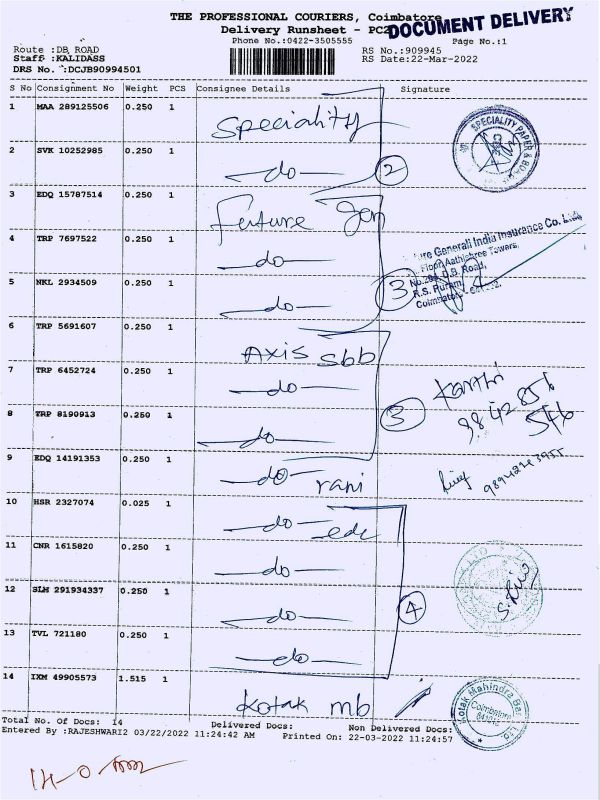 THE PROFESSIONAL COURIERS, Coimbatore
DOCUMENT DELIVERY
Delivery Runsheet - PC2
Phone No.:0422-3505555
Page No.:1
Route :DB ROAD
RS No.:909945
Staff :KALIDASS
RS Date:22-Mar-2022
DRS No. :DCJB90994501
S No Consignment No Weight PCS Consignee Details Signature
1 MAA 289125506 0.250 1 Speciality
SPECIALITY PAPER &
2 SVK 10252985 0.250 1 —do— 2
3 EDQ 15787514 0.250 1 Future Gen
4 TRP 7697522 0.250 1 —do—
Generali India Insurance Co. Ltd.
Floor, Aathishree Towers,
D.B. Road,
R.S. Puram,
5 NKL 2934509 0.250 1 —do— 3
6 TRP 5691607 0.250 1 Axis sbb
7 TRP 6452724 0.250 1 —do—
Karthi
98428 56
546
8 TRP 8190913 0.250 1 —do— 3
9 EDQ 14191353 0.250 1 —do— rani
10 HSR 2327074 0.025 1 —do— edc
11 CNR 1615820 0.250 1 —do—
12 SLM 291934337 0.250 1 —do— 4
13 TVL 721180 0.250 1 —do—
14 IXM 49905573 1.515 1 Kotak mb
Kotak Mahindra Bank Ltd.
Coimbatore
Total No. Of Docs: 14 Delivered Docs: Non Delivered Docs:
Entered By :RAJESHWARI2 03/22/2022 11:24:42 AM Printed On: 22-03-2022 11:24:57